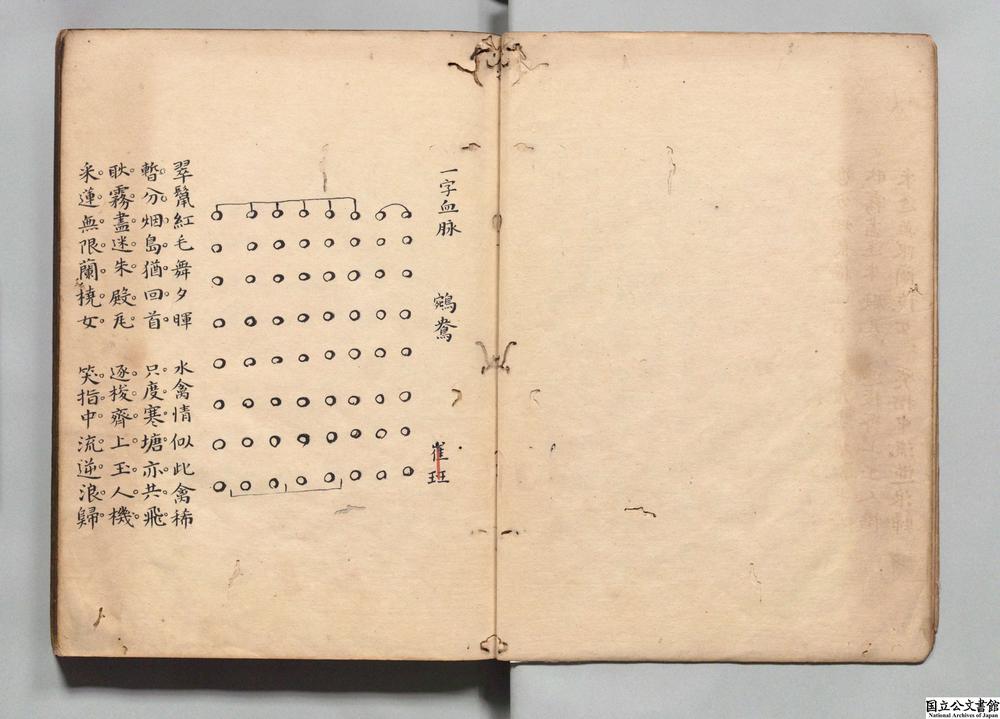 一字血脉
鵷鴦
崔珏
翠鬣紅毛舞夕暉 水禽情似此禽稀
暫分烟島猶回首 只度寒塘亦共飛
耿霧盡迷朱殿瓦 逐梭齊上玉人機
采蓮無限蘭橈女 笑指中流逆浪歸
国立公文書館
National Archives of Japan